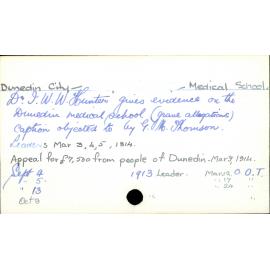 Dunedin City - Medical School.
Dr I. W. W. Hunter gives evidence on the
Dunedin medical school. (grave allegations)
Caption objected to by G. M. Thomson.
Leaders Mar 3, 4, 5, 1914.
Appeal for £7,500 from people of Dunedin. Mar 9, 1914.
Sept 4 1913 Leader. O. D. T.
" 5 " 17 "
" 13 " 24 "
Oct 3